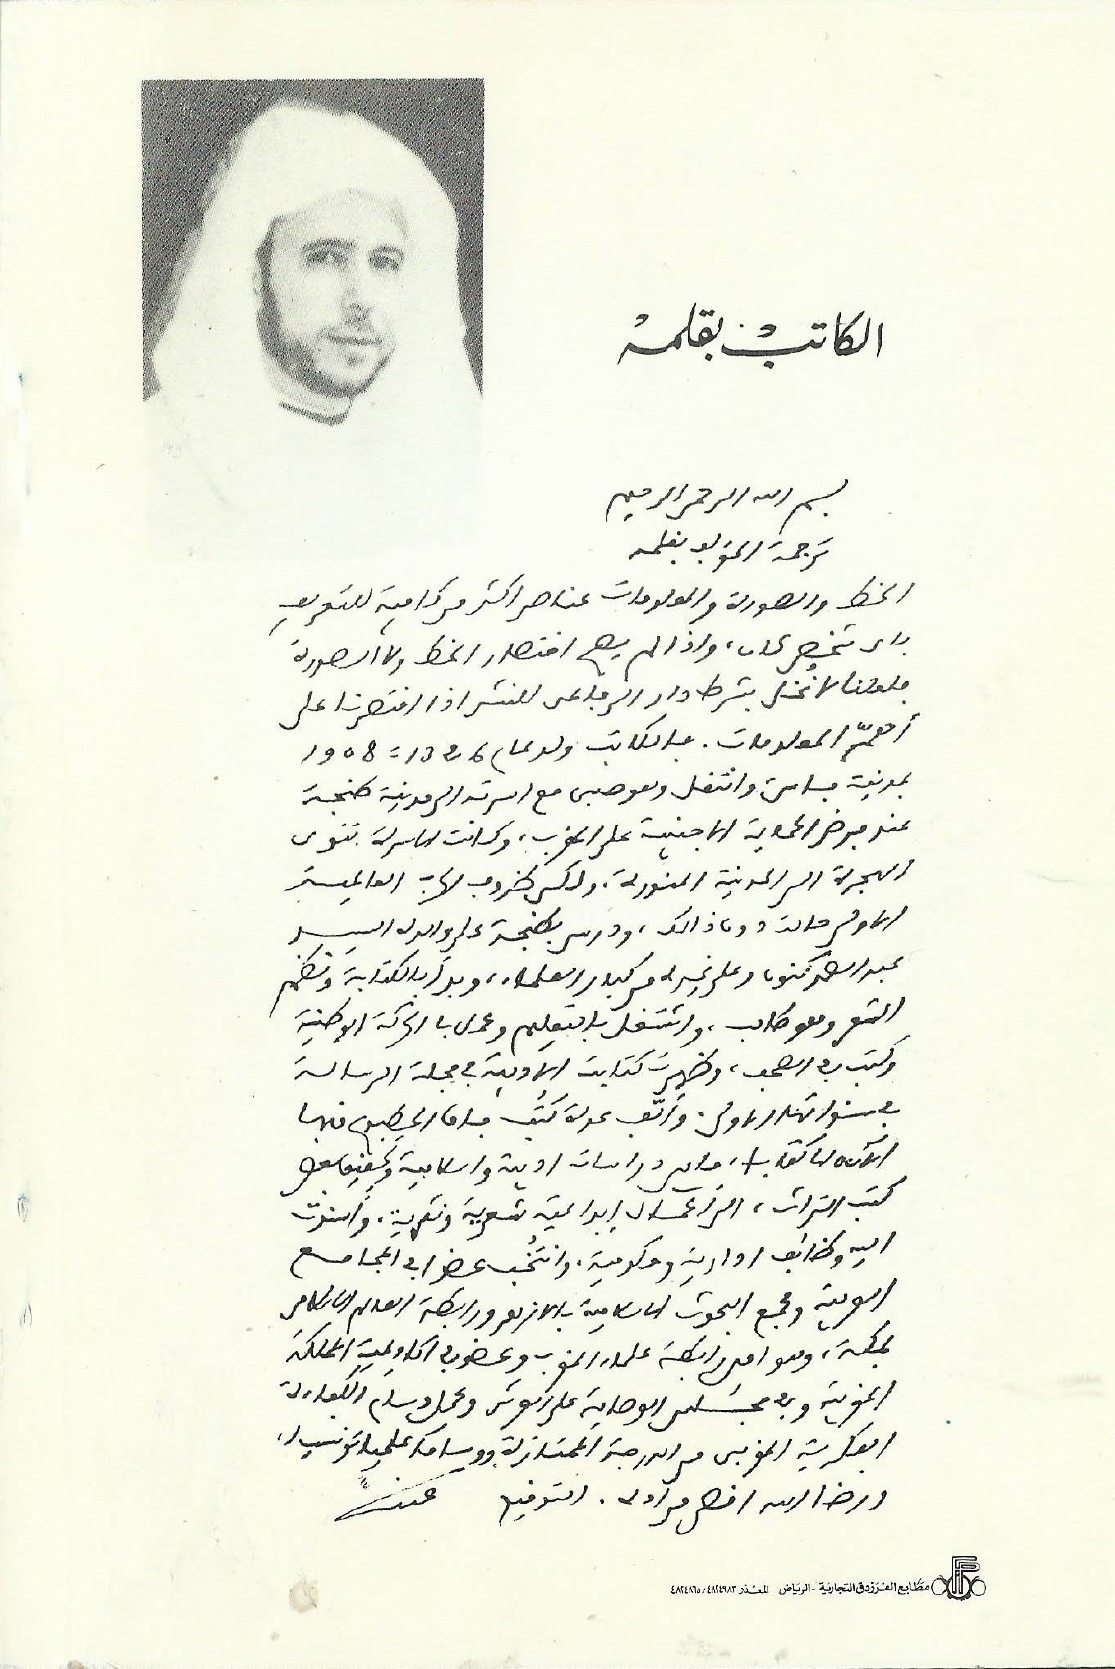 الكاتب بقلمه
بسم الله الرحمن الرحيم
ترجمة المؤلف بقلمه
الخط والصورة والمعلومات عناصر أكثر من كافية للتعريف
بأي شخص كان، وإذا لم يصح اختصار الخط ولا الصورة
فلعلنا لا نُخل بشرط دار الرفاعي للنشر إذا اقتصرنا على
أهمّ المعلومات. فالكاتب ولد عام 1326 هـ = 1908 م
بمدينة فاس وانتقل وهو صبي مع أسرته إلى مدينة طنجة
عند فرض الحماية الأجنبية على المغرب، وكانت الأسرة تنوي
الهجرة إلى المدينة المنورة، ولكن ظروف الحرب العالمية
الأولى حالت دون ذلك، ودرس بطنجة على والده السيد
عبد الصمد كنون وعلى غيره من كبار العلماء، وبدأ بالكتابة ونظم
الشعر وهو طالب، واشتغل بالتعليم وعمل بالحركة الوطنية
وكتب في الصحف، وظهرت كتابته الأدبية في مجلة الرسالة
في سنواتها الأولى. وألّف عدة كتب فاق المطبوع منها
الآن كتابا، ما بين دراسات أدبية وإسلامية وتحقيق لبعض
كتب التراث، إلى أعمال إبداعية شعرية ونثرية، وأسندت
إليه وظائف إدارية وحكومية، وانتُخب عضوا في المجامع
العربية ومجمع البحوث الإسلامية بالأزهر ورابطة العالم الإسلامي
بمكة، وهو أمين رابطة علماء المغرب وعضو في أكاديمية المملكة
المغربية وفي مجلس الوصاية على العرش وحمل وسام الكفاءة
الفكرية المغربي من الدرجة الممتازة ووساما علميا تونسيا،
ورضا الله أفضل من ذلك. التوقيع
مطابع الفرزدق التجارية - الرياض المعذر ٤٨٢٤٩٨٣/ ٤٨٢٤٨٦٥